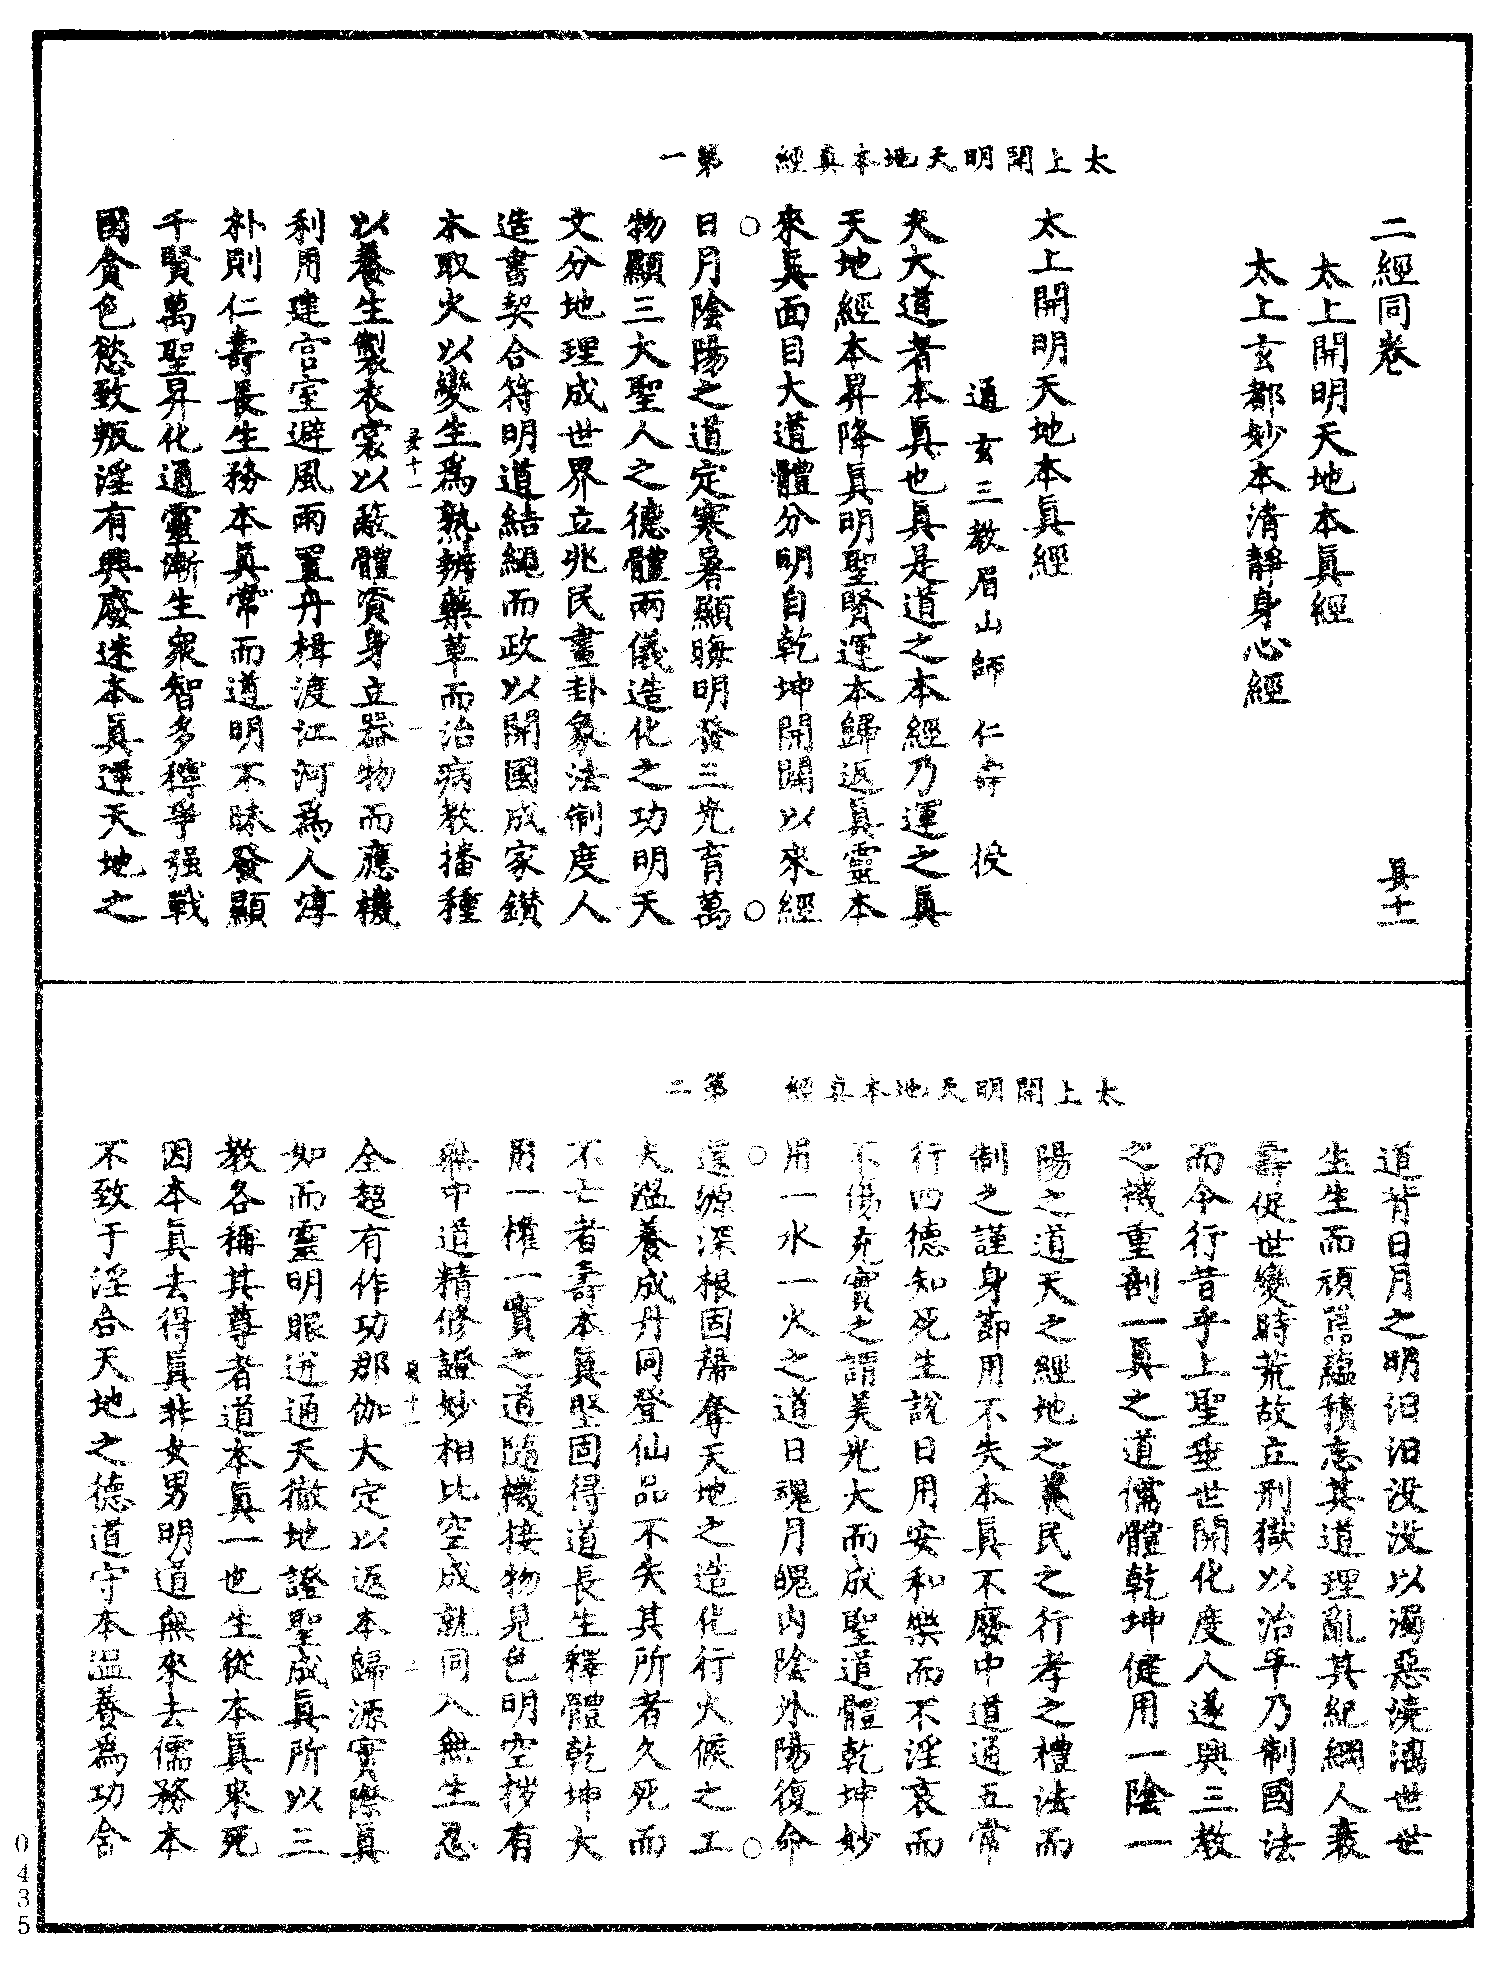 太上開明天地本真經　第一
二經同卷　真十一
太上開明天地本真經
太上玄都妙本清靜身心經
太上開明天地本真經
通玄三教眉山師　仁壽　授
夫大道者本真也真是道之本經乃運之真
天地經本昇降真明聖賢運本歸返真靈本
來真面目大道體分明自乾坤開闢以來經
日月陰陽之道定寒暑顯晦明發三光育萬
物顯三大聖人之德體兩儀造化之功明天
文分地理成世界立兆民畫卦象法制度人
造書契合符明道結繩而政以開國成家鑽
木取火以變生為熟辨藥草而治病教播種
以養生製衣裳以蔽體資身立器物而應機
利用建宮室避風雨置舟楫渡江河為人淳
朴則仁壽長生務本真常而道明不昧發顯
千賢萬聖昇化通靈漸生眾智多穉爭强戰
國貪色慾致叛淫有興廢迷本真運天地之
太上開明天地本真經　第二
道背日月之明汩汩沒沒以濁惡澆漓世世
生生而頑囂蘊積忘其道理亂其紀綱人衰
壽促世變時荒故立刑獄以治平乃制國法
而令行昔乎上聖垂世開化度人遂興三教
之機重剖一真之道儒體乾坤健用一陰一
陽之道天之經地之義民之行孝之禮法而
制之謹身節用不失本真不廢中道通五常
行四德知死生說日用安和樂而不淫哀而
不傷充實之謂美光大而成聖道體乾坤妙
用一水一火之道日魂月魄內陰外陽復命
還源深根固蒂奪天地之造化行火候之工
夫溫養成丹同登仙品不失其所者久死而
不亡者壽本真堅固得道長生釋體乾坤大
用一權一實之道隨機接物見色明空拶有
無中道精修證妙相比空成就同入無生忍
全超有作功那伽大定以返本歸源實際真
如而靈明眼迸通天徹地證聖成真所以三
教各稱其尊者道本真一也生從本真來死
因本真去得真非女男明道無來去儒務本
不致于淫合天地之德道守本溫養為功合
真十一　一
真十一　二
0435